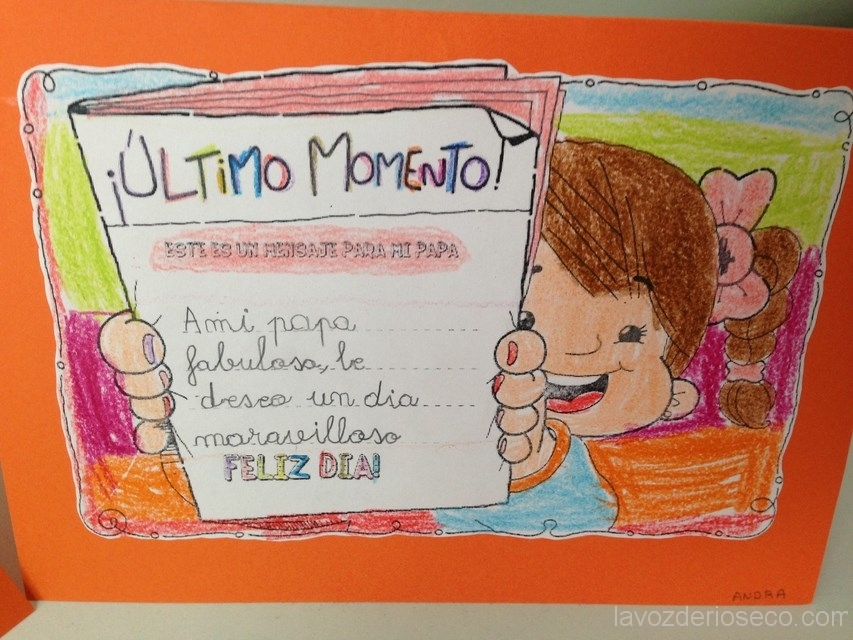 ¡ÚLTIMO MOMENTO!
ESTE ES UN MENSAJE PARA MI PAPA
A mi papa
fabuloso, le
deseo un dia
maravilloso
FELIZ DIA!
ANDRA
lavozderioseco.com